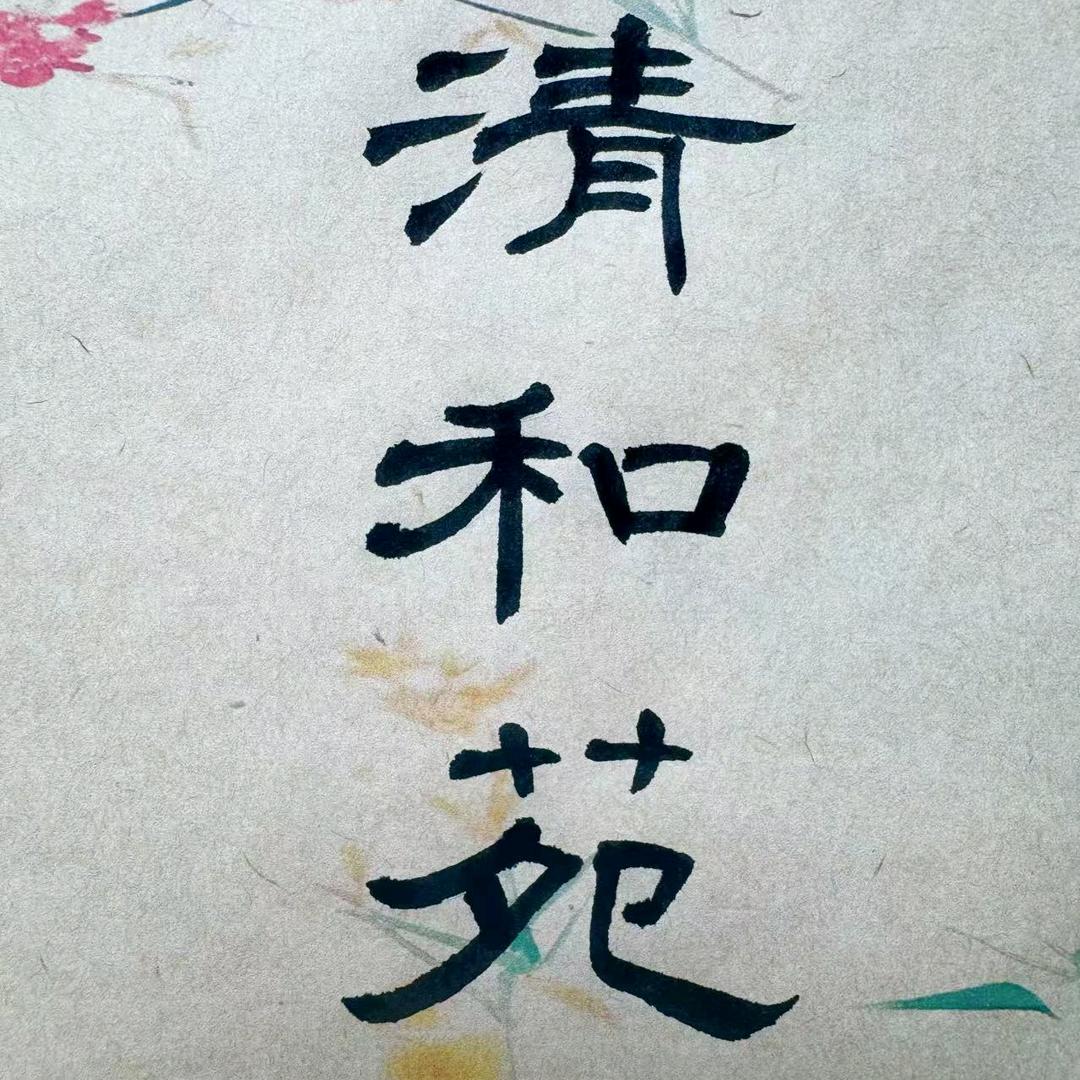 清和苑